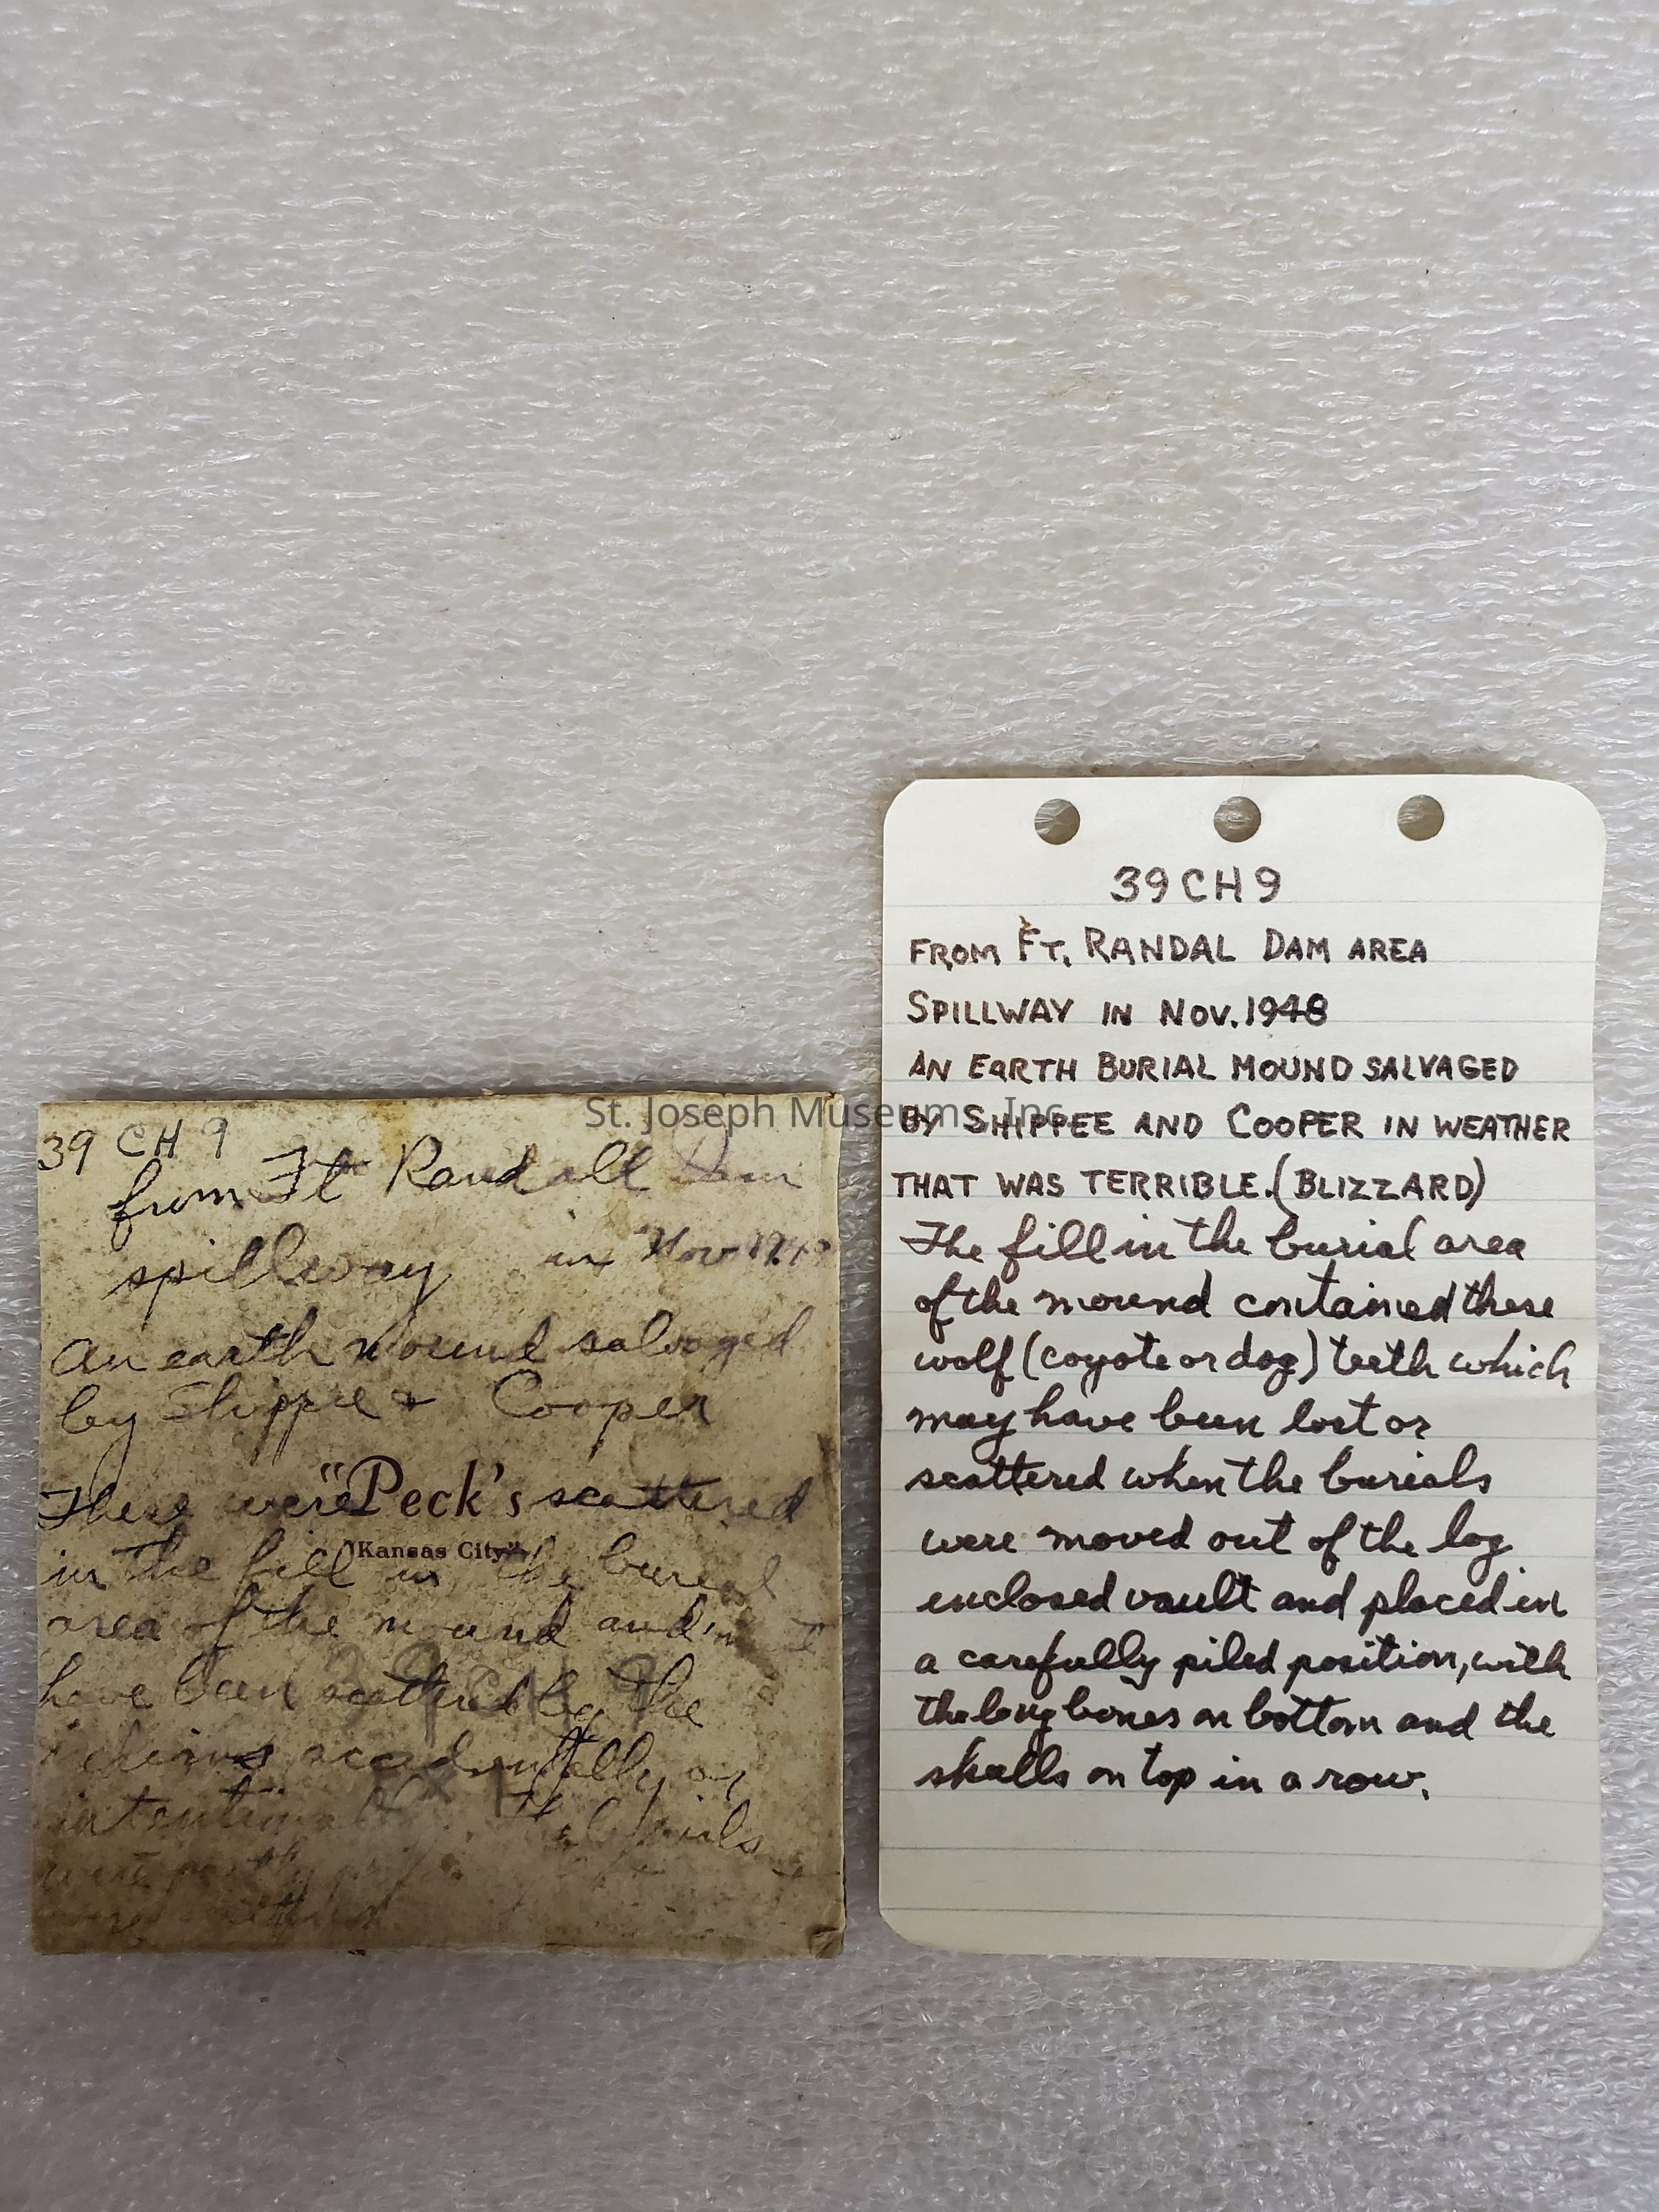 39 CH 9
from Ft Randall Dam
spillway in Nov
An earth mound salvaged
by Shippee & Cooper
"Peck's
Kansas City"
These were scattered
in the fill in the burial
area of the mound and
have been scattered by the
accidentally or
39 CH 9
FROM FT. RANDAL DAM AREA
SPILLWAY IN NOV. 1948
AN EARTH BURIAL MOUND SALVAGED
BY SHIPPEE AND COOPER IN WEATHER
THAT WAS TERRIBLE. (BLIZZARD)
The fill in the burial area
of the mound contained these
wolf (coyote or dog) teeth which
may have been lost or
scattered when the burials
were moved out of the log
enclosed vault and placed in
a carefully piled position, with
the long bones on bottom and the
skulls on top in a row.
St. Joseph Museums, Inc.